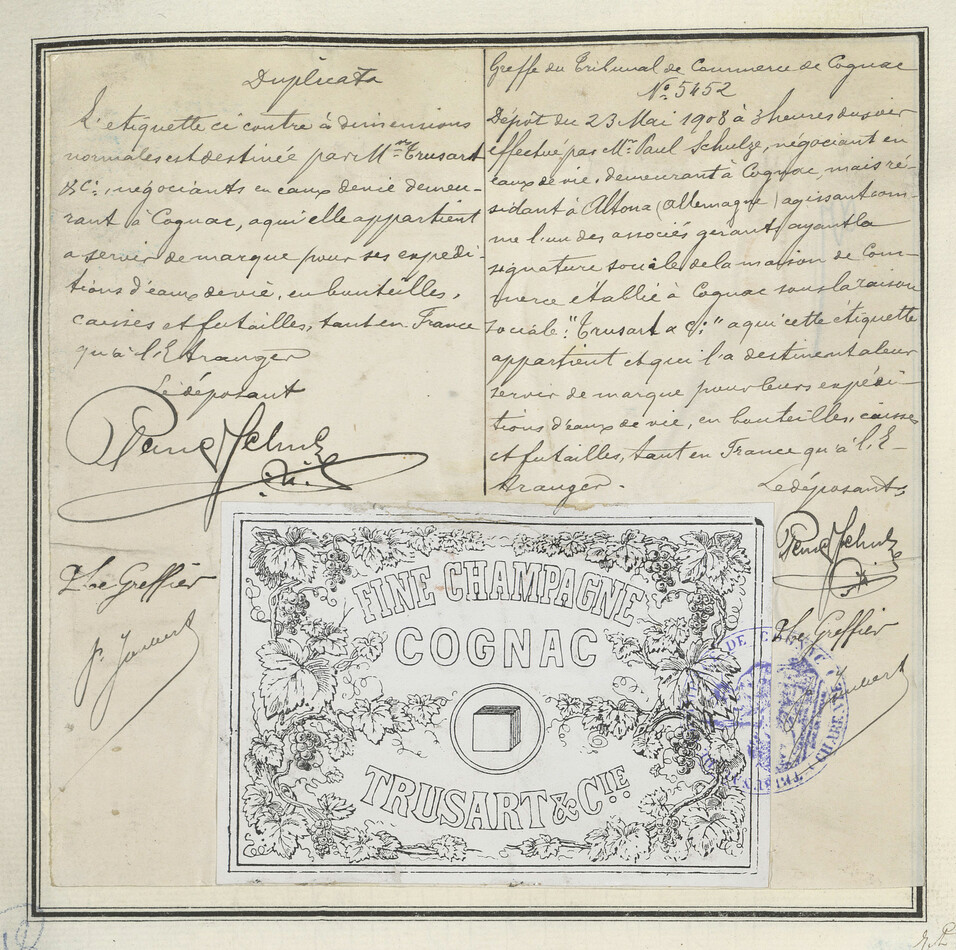 Duplicata
L'etiquette ci contre à dimensions
normales est destinée par Mrs Trusart
& Cie, négociants en eaux de vie demeu-
rant à Cognac, a qui elle appartient
a servir de marque pour ses expédi-
tions d'eaux de vie, en bouteilles,
caisses et futailles, tant en France
qu'à l'Etranger
Le déposant
Paul Schulze
P. Le Greffier
Greffe du Tribunal de Commerce de Cognac
No. 5452
Dépôt du 23 Mai 1908 à 3 heures du soir
effectué par Mr. Paul Schulze, négociant en
eaux de vie, demeurant à Cognac, mais ré-
sidant à Altona (Allemagne) agissant com-
me l'un des associés gérants ayant la
signature sociale de la maison de Com-
merce établie à Cognac sous la raison
sociale: "Trusart & Cie" a qui cette étiquette
appartient et qui l'a destinent a leur
servir de marque pour leurs expédi-
tions d'eaux de vie, en bouteilles, caisses
et futailles, tant en France qu'à l'E-
tranger.
Le déposant
Paul Schulze
P. Le Greffier
FINE CHAMPAGNE
COGNAC
TRUSART & CIE